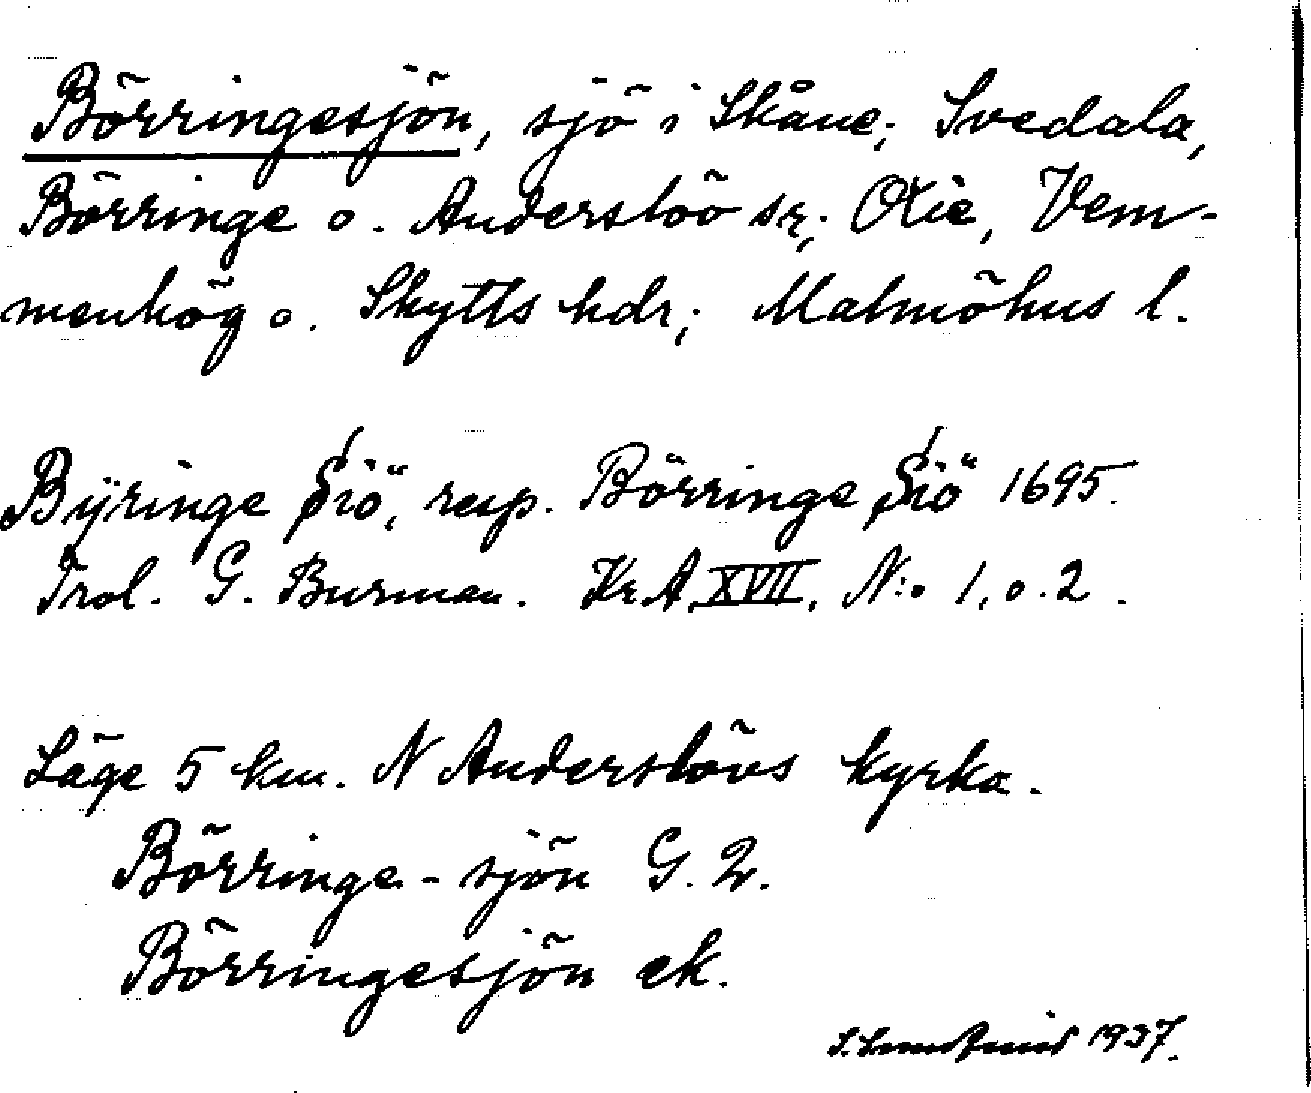 Börringesjön, sjö i Skåne; Svedala,
Börringe o. Anderslöv sr; Oxie, Vem-
menhög o. Skytts hdr; Malmöhus l.
Byringe Siö, resp. Börringe Siö 1695.
Trol. G. Burman. Kr.A. XVII, N:o 1, o. 2.
Läge 5 km. N Anderslövs kyrka.
Börringe-sjön G. 2.
Börringesjön ek.
1937.